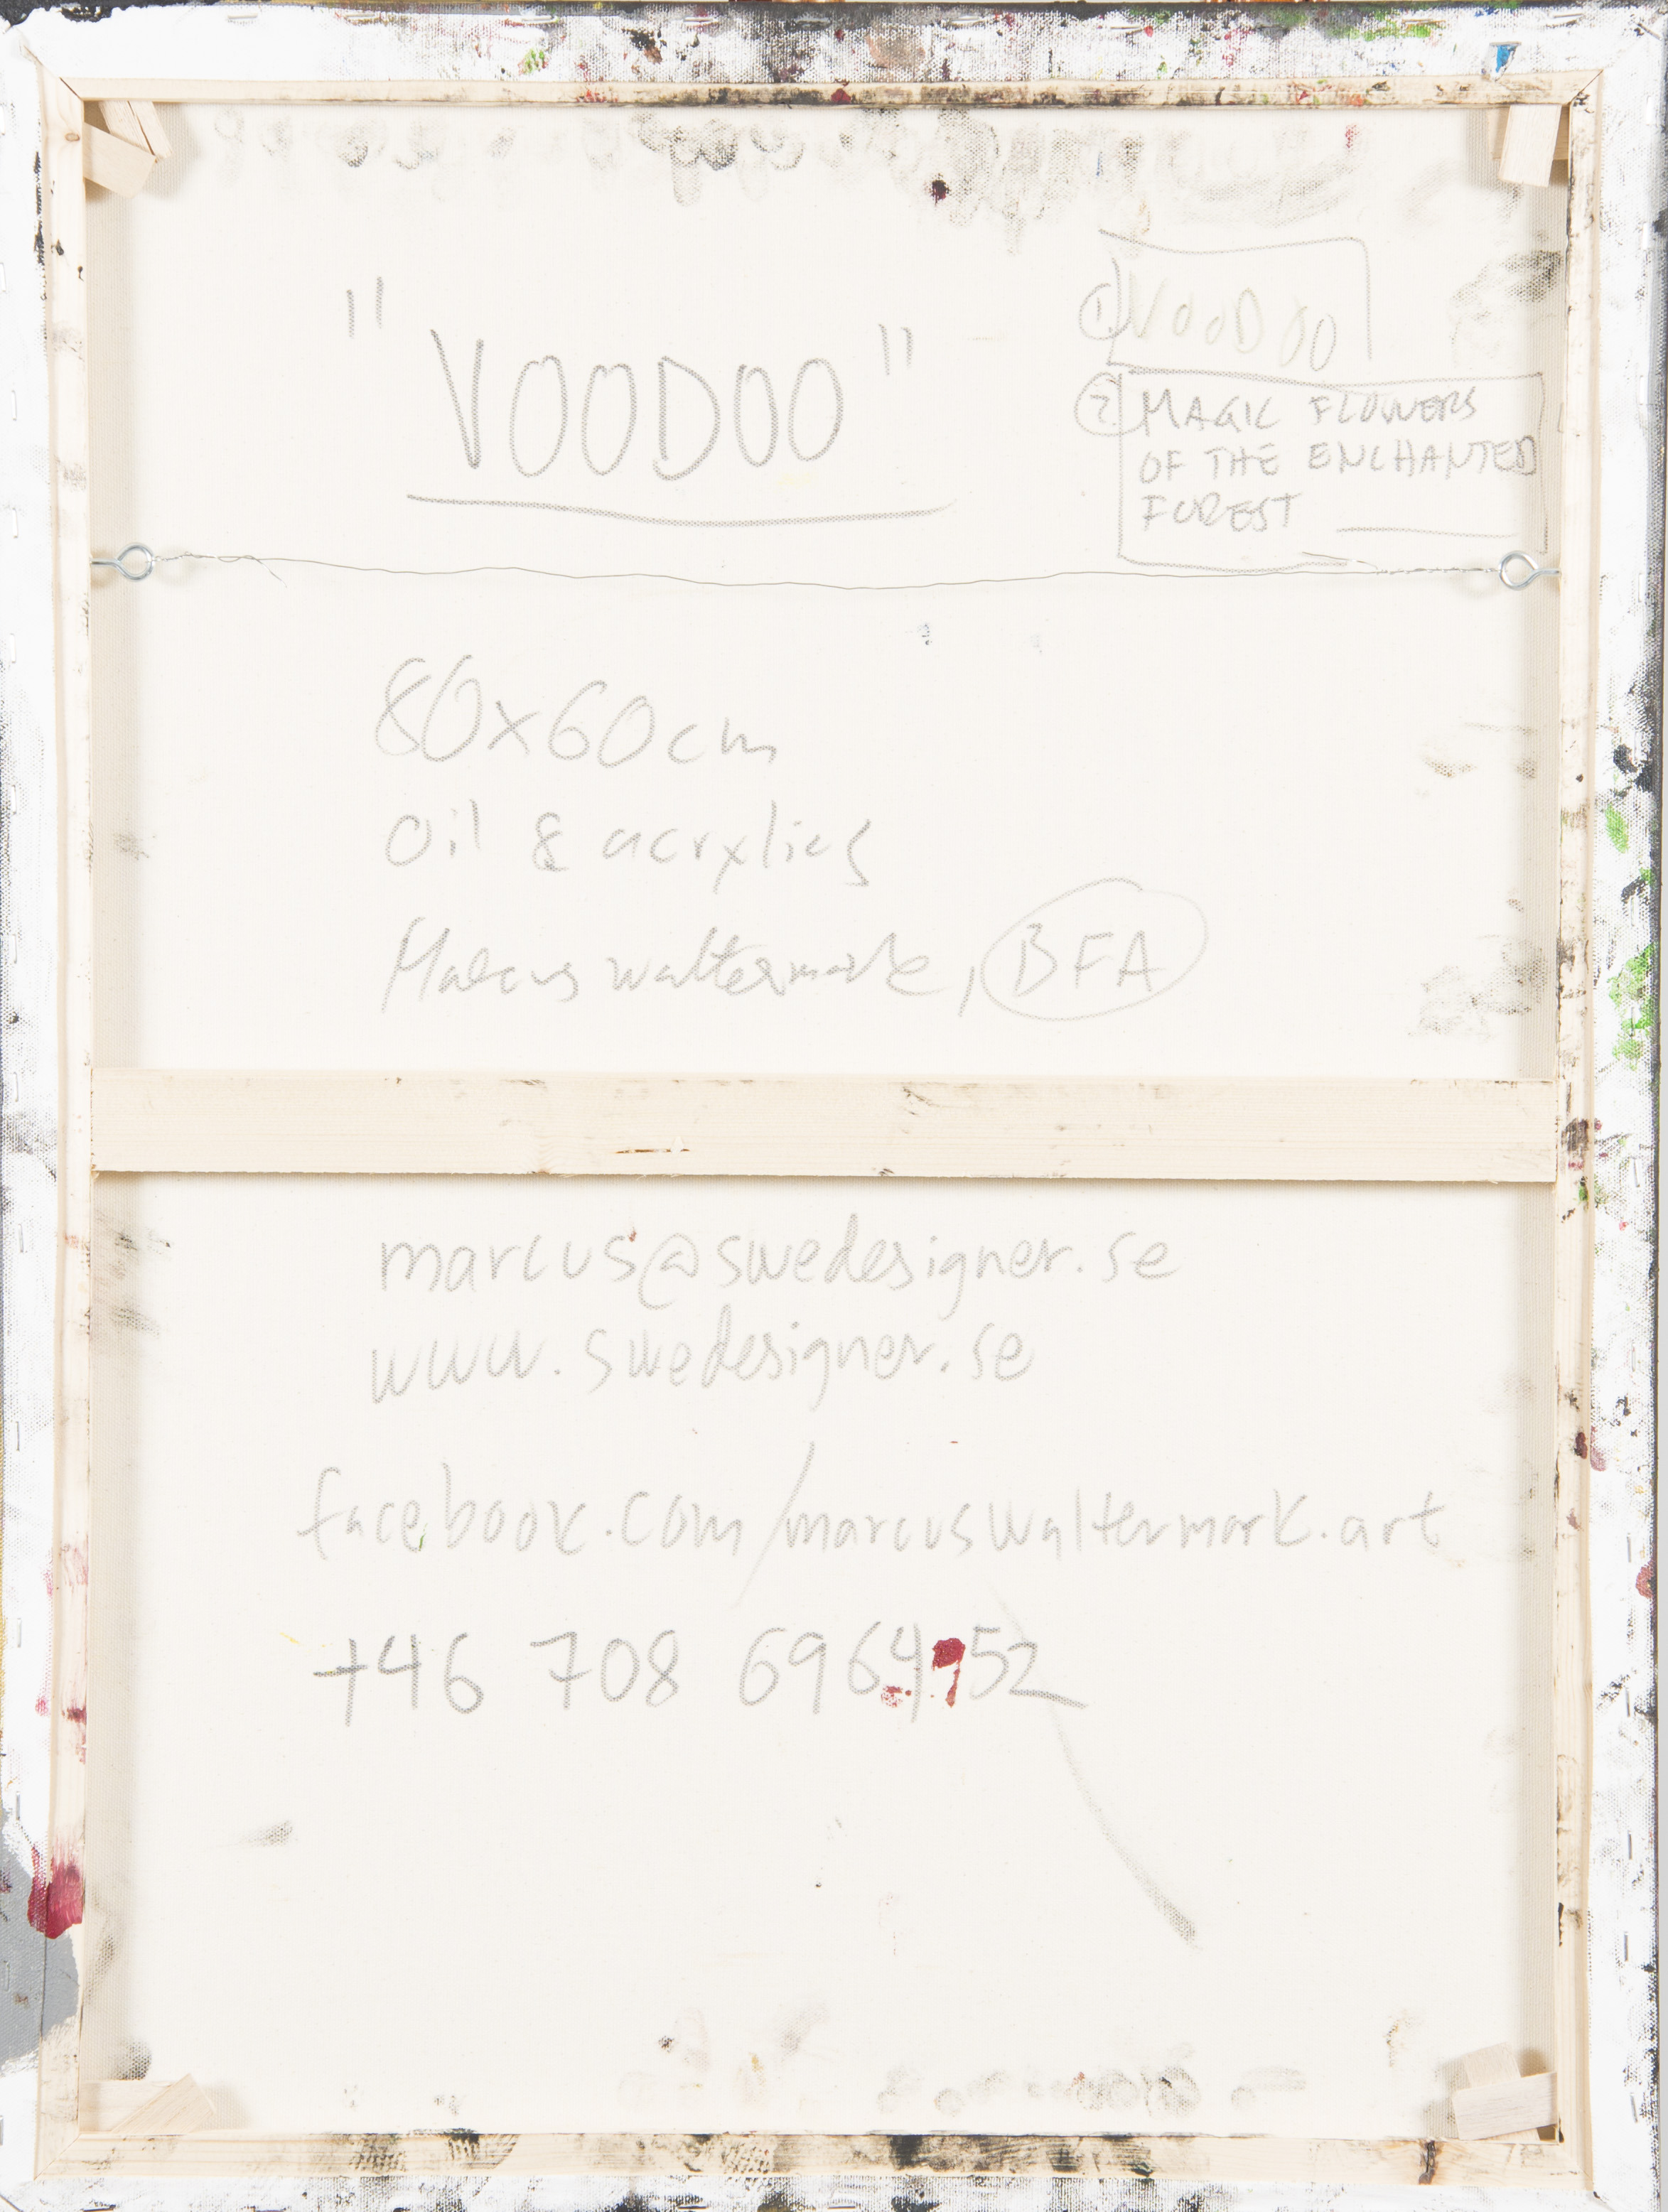 "VOODOO"
1. VOODOO
2 MAGIC FLOWERS
OF THE ENCHANTED
FOREST
80x60cm
Oil & acrylics
Marcus Waltermark, BFA
marcus@swedesigner.se
www.swedesigner.se
facebook.com/marcuswaltermark.art
+46 708 696452